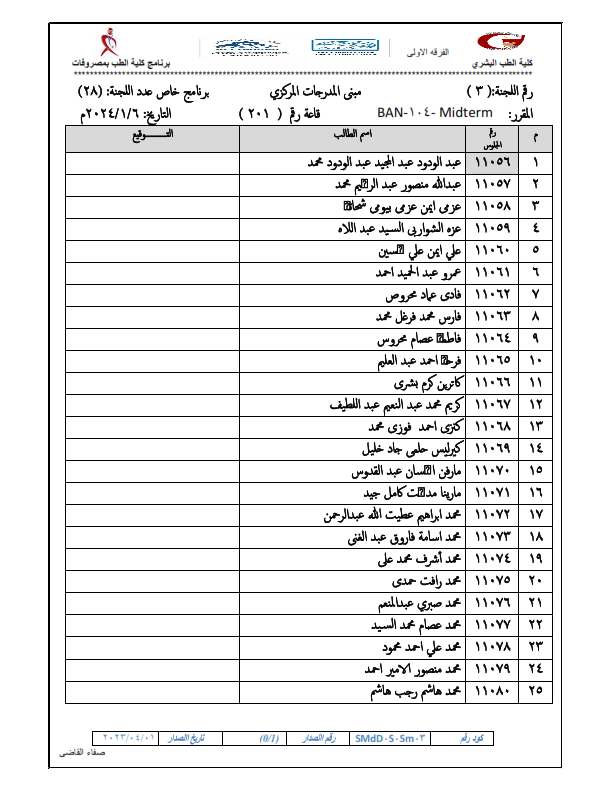 كلية الطب البشري
الفرقه الاولى
برنامج كلية الطب بمصروفات
رقم اللجنة: ( ٣ ) مبنى المدرجات المركزي برنامج خاص عدد اللجنة: (٢٨)
المقرر: BAN-١٠٤- Midterm قاعة رقم ( ٢٠١ ) التاريخ: ٢٠٢٤/١/٦م
م رقم الجلوس اسم الطالب التـــــوقيع
١ ١١٠٥٦ عبد الودود عبد المجيد عبد الودود محمد
٢ ١١٠٥٧ عبدالله منصور عبد الر�يم محمد
٣ ١١٠٥٨ عزمى ايمن عزمى بيومى شحات�
٤ ١١٠٥٩ عزه الشواربى السيد عبد اللاه
٥ ١١٠٦٠ علي ايمن علي �سين
٦ ١١٠٦١ عمرو عبد الحميد احمد
٧ ١١٠٦٢ فادى عماد محروص
٨ ١١٠٦٣ فارس محمد فرغل محمد
٩ ١١٠٦٤ فاطم� عصام محروس
١٠ ١١٠٦٥ فرح� احمد عبد العليم
١١ ١١٠٦٦ كاترين كرم بشرى
١٢ ١١٠٦٧ كريم محمد عبد النعيم عبد اللطيف
١٣ ١١٠٦٨ كنزى احمد فوزى محمد
١٤ ١١٠٦٩ كيرليس حلمى جاد خليل
١٥ ١١٠٧٠ مارفن ا�سان عبد القدوس
١٦ ١١٠٧١ مارينا مد�ت كامل جيد
١٧ ١١٠٧٢ محمد ابراهيم عطيت الله عبدالرحمن
١٨ ١١٠٧٣ محمد اسامة فاروق عبد الغنى
١٩ ١١٠٧٤ محمد أشرف محمد على
٢٠ ١١٠٧٥ محمد رافت حمدى
٢١ ١١٠٧٦ محمد صبري عبدالمنعم
٢٢ ١١٠٧٧ محمد عصام محمد السيد
٢٣ ١١٠٧٨ محمد علي احمد محمود
٢٤ ١١٠٧٩ محمد منصور الامير احمد
٢٥ ١١٠٨٠ محمد هاشم رجب هاشم
كود رقم SMdD٠S٠Sm٠٣ رقم الصدار (0/1) تاريخ الصدار ٢٠٢٣/٠٤/٠١
صفاء القاضى